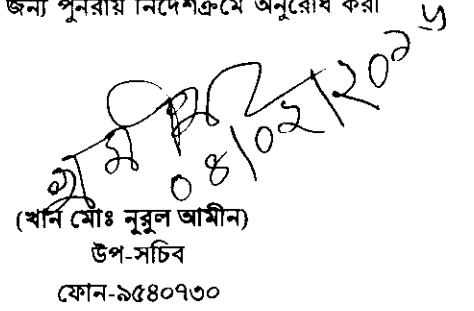 জন্য পুনরায় নির্দেশক্রমে অনুরোধ করা
০৪/০২/২০১
(খান মোঃ নূরুল আমীন)
উপ-সচিব
ফোন-৯৫৪০৭৩০